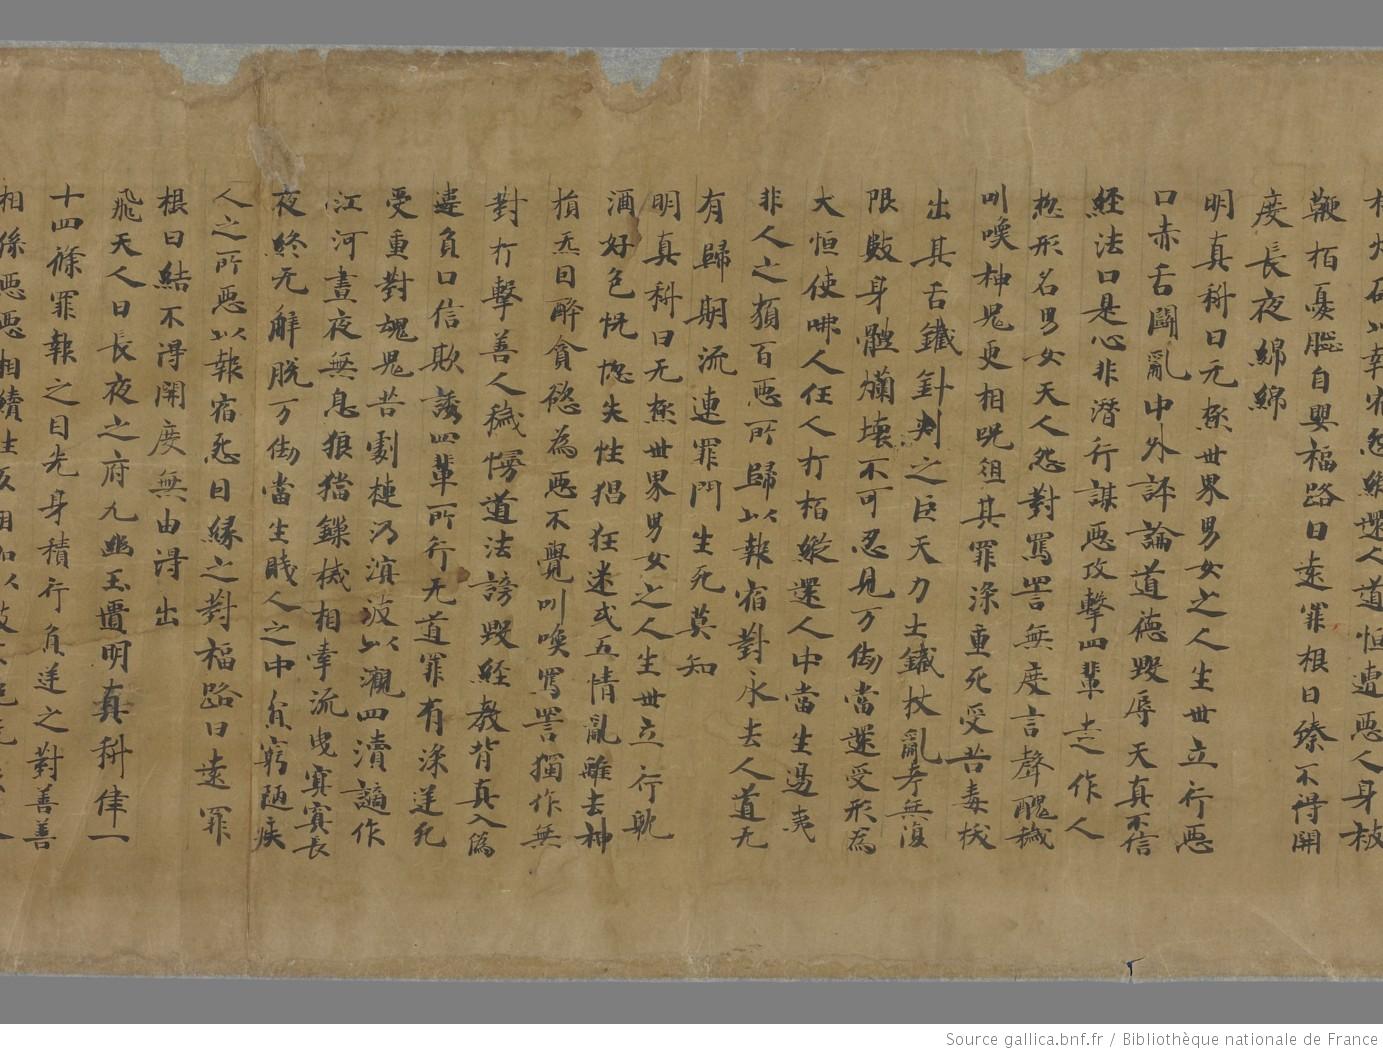 鞭栢憂惱自嬰福路日遠罪根日臻不得開
度長夜綿綿
明真科曰无極世界男女之人生世立行惡
口赤舌鬪亂中外評論道德毀辱天真不信
經法口是心非潛行謀惡攻擊四輩志作人
極形名男女天人怨對罵詈無度言聲醜穢
叫喚神鬼更相呪詛其罪深重死受苦毒
出其舌鐵針刾之巨天力士鐵杖亂考無復
限數身體爛壞不可忍見万劫當還受形為
大恒使啼人任人打栢縱還人中當生邊夷
非人之類百惡所歸以報宿對永去人道无
有歸期流連罪門生死莫知
明真科曰无極世界男女之人生世立行躭
酒好色恍惚失性猖狂迷或五情亂離去神
損炁因醉貪慾為惡不覺叫喚罵詈獨作無
對打擊善人穢慢道法謗毀經教背真入偽
違負口信欺誘四輩所行无道罪有深逆死
受重對魂鬼苦劇樁乃湌波以溉四瀆謫作
江河晝夜無息狼猎鏁械相牽流曵寘寘長
夜終无解脫万劫當生賎人之中貧窮陋疾
人之所惡以報宿怨曰緣之對福路日遠罪
根日結不得開度無由得出
飛天人曰長夜之府九幽玉匱明真科律一
十四條罪報之目先身積行負逆之對善善